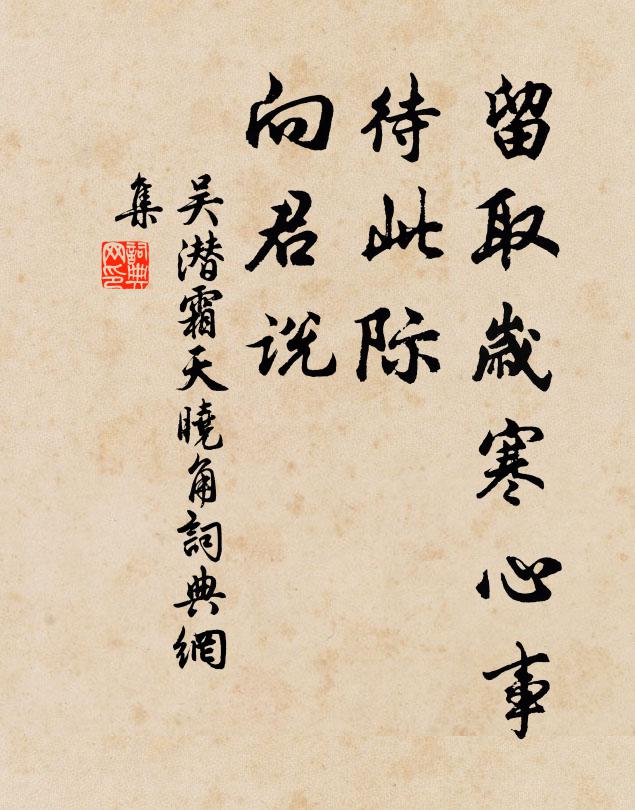 留取歲寒心事
待此际
向君说
吴潜霜天曉角詞典網
集
詞典
网印